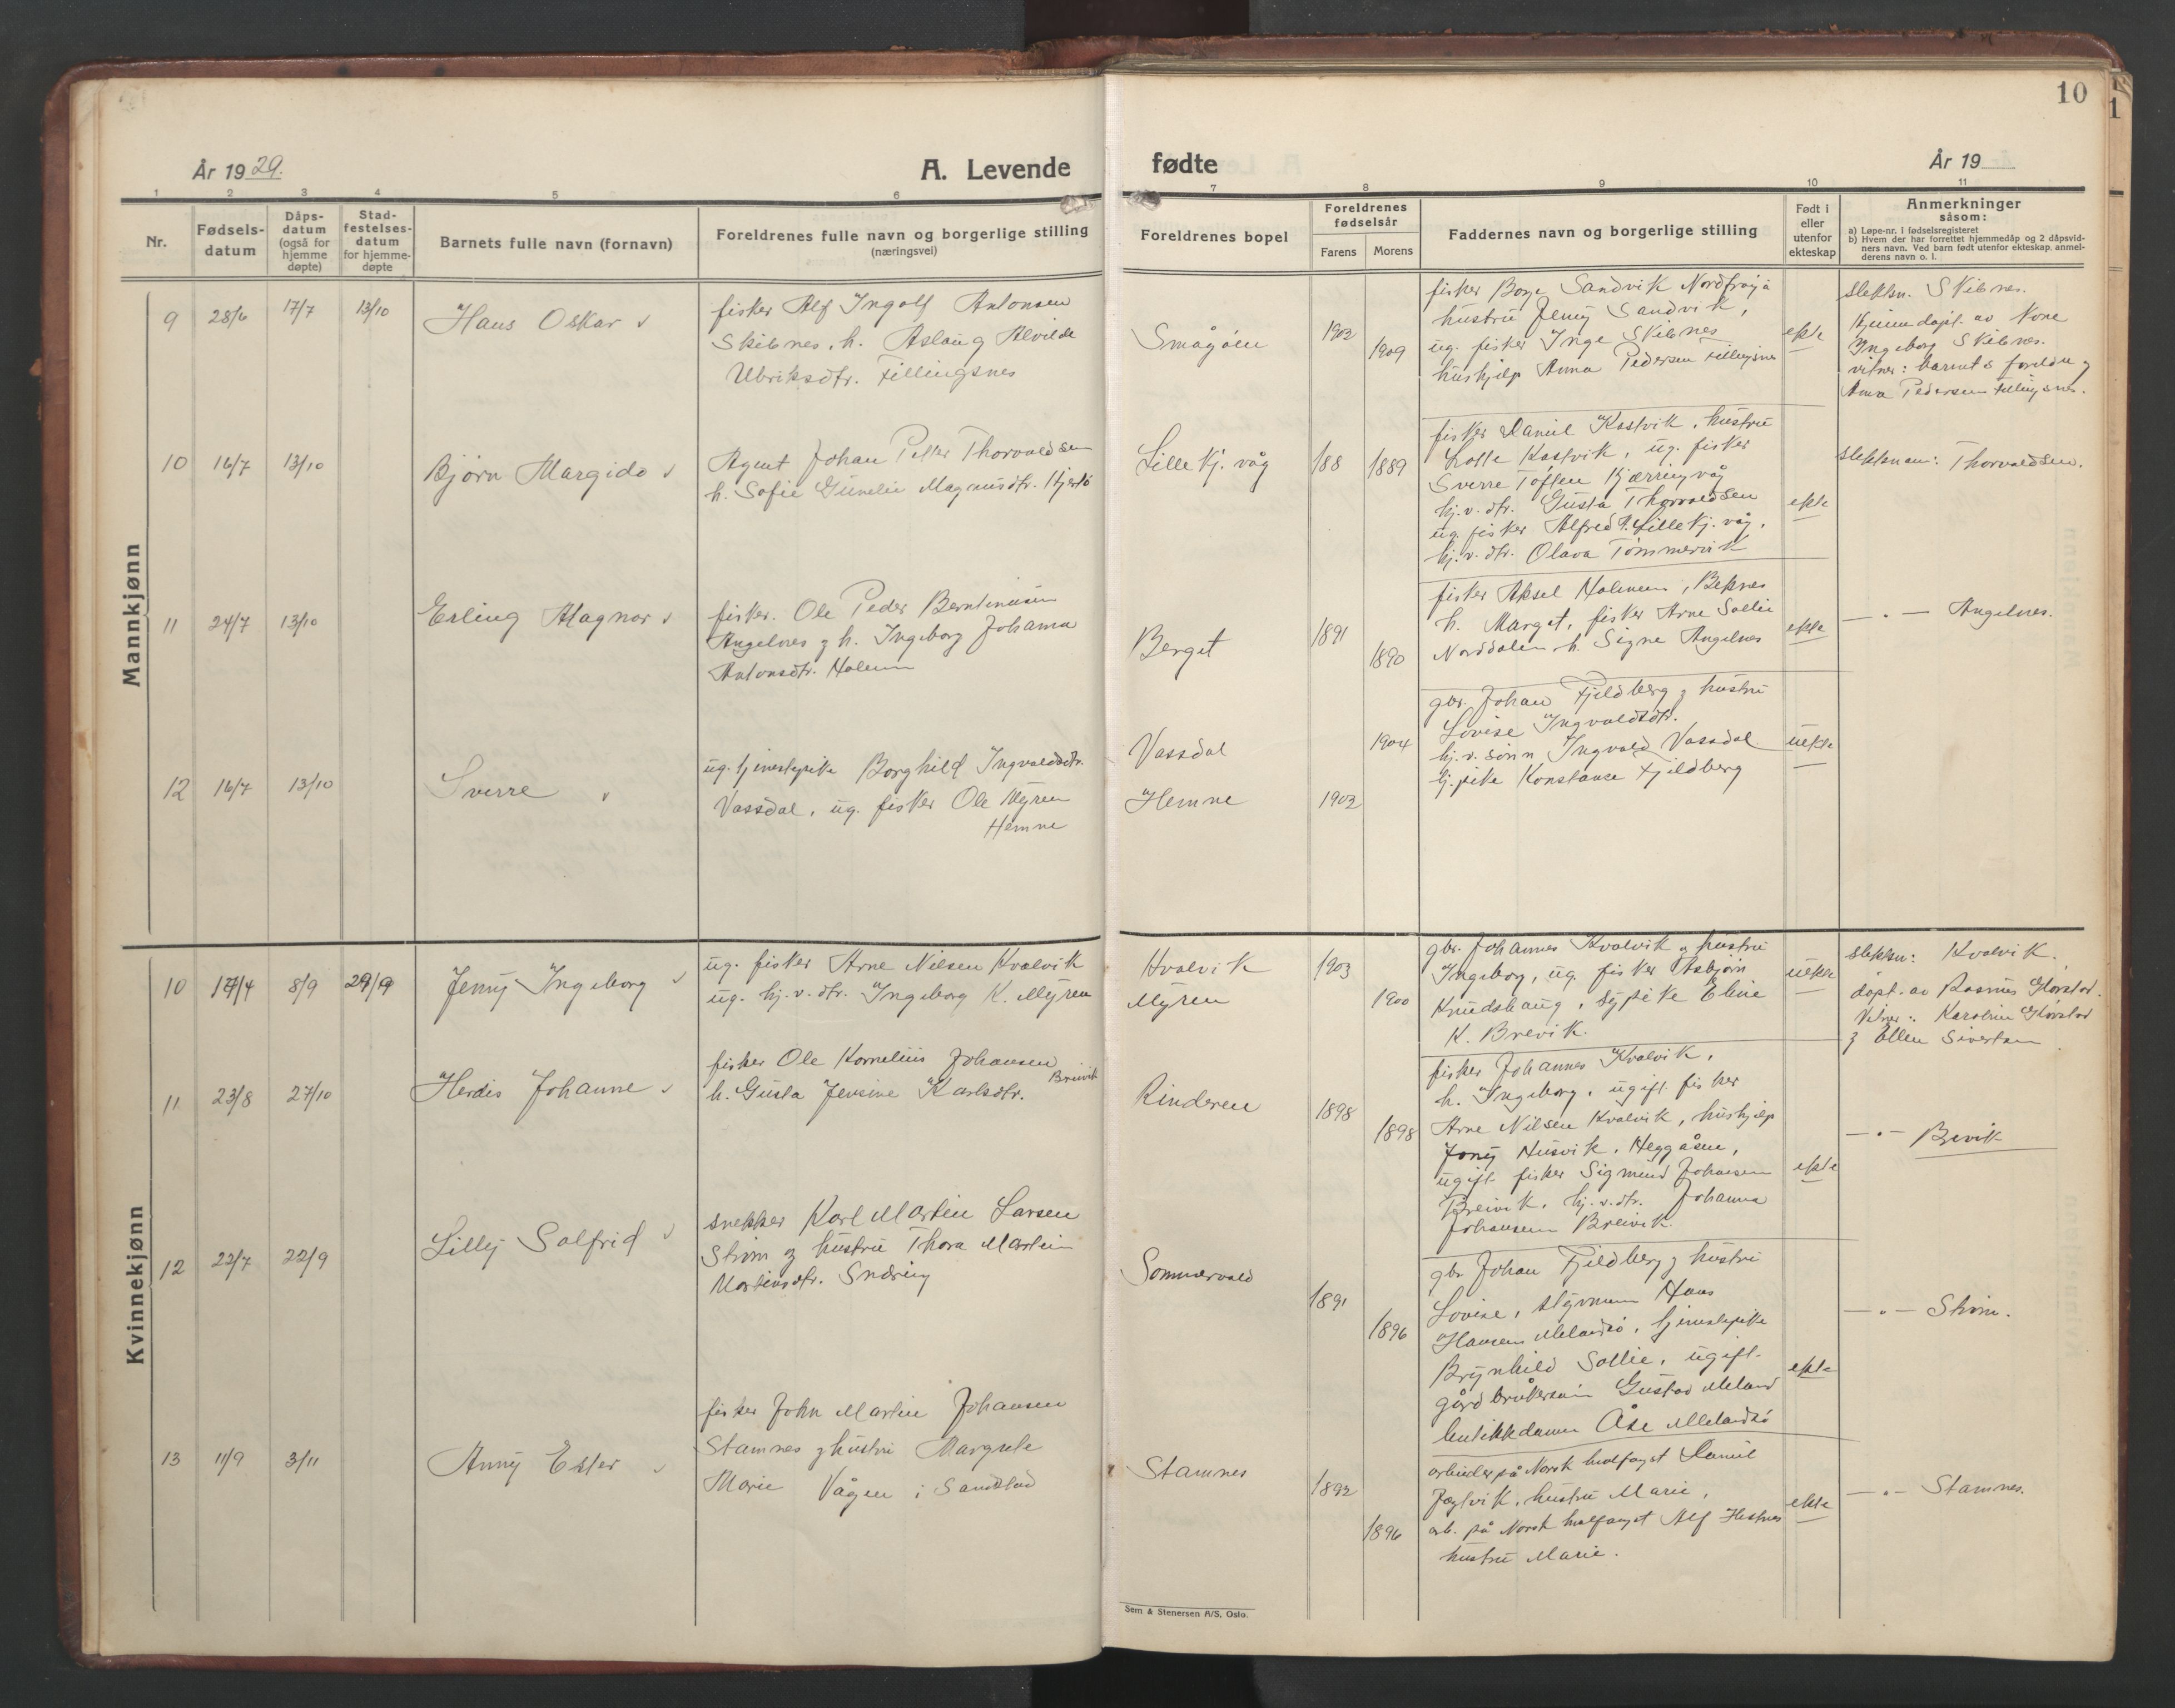 10
År 1929.
A. Levende
fødte
År 19
1 2 3 4 5 6
7 8 9 10 11
Nr.
Fødsels-
datum
Dåps-
datum
(også for
hjemme
døpte)
Stad-
festelses-
datum
for hjemme-
døpte
Barnets fulle navn (fornavn)
Foreldrenes fulle navn og borgerlige stilling
(næringsvei)
Foreldrenes bopel
Foreldrenes
fødselsår
Farens Morens
Faddernes navn og borgerlige stilling
Født i
eller
utenfor
ekteskap
Anmerkninger
såsom:
a) Løpe-nr. i fødselsregisteret
b) Hvem der har forrettet hjemmedåp og 2 dåpsvid-
ners navn. Ved barn født utenfor ekteskap, anmel-
derens navn o. l.
Mannkjønn
9 28/6 17/7 13/10
Hans Oskar
fisker Alf Ingolf Antonsen
Skibnes, h. Aslaug Alvilde
Ulriksdtr. Fillingsnes
Smågøen
1902
1909
fisker Borge Sandvik Nordfrøya
hustru Jenny Sandvik,
ug. fisker Inge Skibnes
hushjelp Anna Pedersen Fillingsnes
ekte
slektsn. Skibnes.
Hjemmedøpt av Kone
Ingeborg Skibnes.
vitner: barnets foreldre og
Anna Pedersen Fillingsnes.
10 16/7 13/10
Bjørn Margido
Agent Johan Petter Thorvaldsen
h. Sofie Gunelie Magnusdtr. Hjertø
Lille Kj. våg
188 1889
fisker Daniel Kastvik, hustru
Lotte Kastvik, ug. fisker
Sverre Toften Kjerringvåg
hj.v. dtr. Gusta Thorvaldsen
ug. fisker Alfred Lille Kj. våg,
hj.v. dtr. Olava Tømmervik
ekte
slektsnavn: Thorvaldsen.
11 24/7 13/10
Erling Magnar
fisker. Ole Peder Berntinusen
Angelnes og h. Ingeborg Johanna
Antonsdtr. Holmen
Berget
1891
1890
fisker Aksel Holmen, Beknes
h. Margot, fisker Arne Sollie
Norddalen h. Signe Angelnes
ekte
— " — Angelnes.
12 16/7 13/10
Sverre
ug. tjenestepike Borghild Ingvaldsdtr.
Vassdal, ug. fisker Ole Myren
Hemne
Vassdal
Hemne
1904
1902
gbr. Johan Fjeldberg og hustru
Lovise Ingvaldsdtr.
hj.v. sønn Ingvald Vassdal
tj. pike Konstanse Fjeldberg
uekte
Kvinnekjønn
10 17/4 8/9 29/9
Jenny Ingeborg
ug. fisker Arne Nilsen Kvalvik
ug. hj.v. dtr. Ingeborg K. Myren
Kvalvik
Myren
1903
1900
gbr. Johannes Kvalvik og hustru
Ingeborg, ug. fisker Asbjørn
Knudshaug, sypike Eline
K. Brevik.
uekte
slektsn: Kvalvik.
døpt av Rasmus
Vitner: Karoline
og Ellen Sivertsen
11 23/8 27/10
Herdis Johanne
fisker Ole Kornelius Johansen
Breivik
h. Gusta Jensine Karlsdtr.
Rinderen
1898
1898
fisker Johannes Kvalvik,
h. Ingeborg, ugift fisker
Arne Nilsen Kvalvik, hushjelp
Jony Husvik, Heggåsen,
ugift fisker Sigmund Johansen
Breivik, hj.v. dtr. Johanna
Johansen Breivik.
ekte
— " — Brevik
12 22/7 22/9
Lilly Solfrid
snekker Karl Martin Larsen
Strøm og hustru Thora Martin
Martinsdtr. Snøring
Sommervold
1891
1896
gbr. Johan Fjeldberg og hustru
Lovise, styrmann Hans
Hansen Melandsø, tjenestepike
Brynhild Sollie, ugift
gårdbrukersønn Gustav Meland
butikkdame Åse Melandsø
ekte
— " — Strøm.
13 11/9 3/11
Anny Ester
fisker John Martin Johansen
Stamnes og hustru Margrete
Marie Vågen i Sandstad
Stamnes
1892
1896
arbeider på Norsk hvalfangst Daniel
Jægtvik, hustru Marie,
arb. på Norsk hvalfangst Alf Hestnes
hustru Marie.
ekte
— " — Stamnes.
Sem & Stenersen A/S, Oslo.